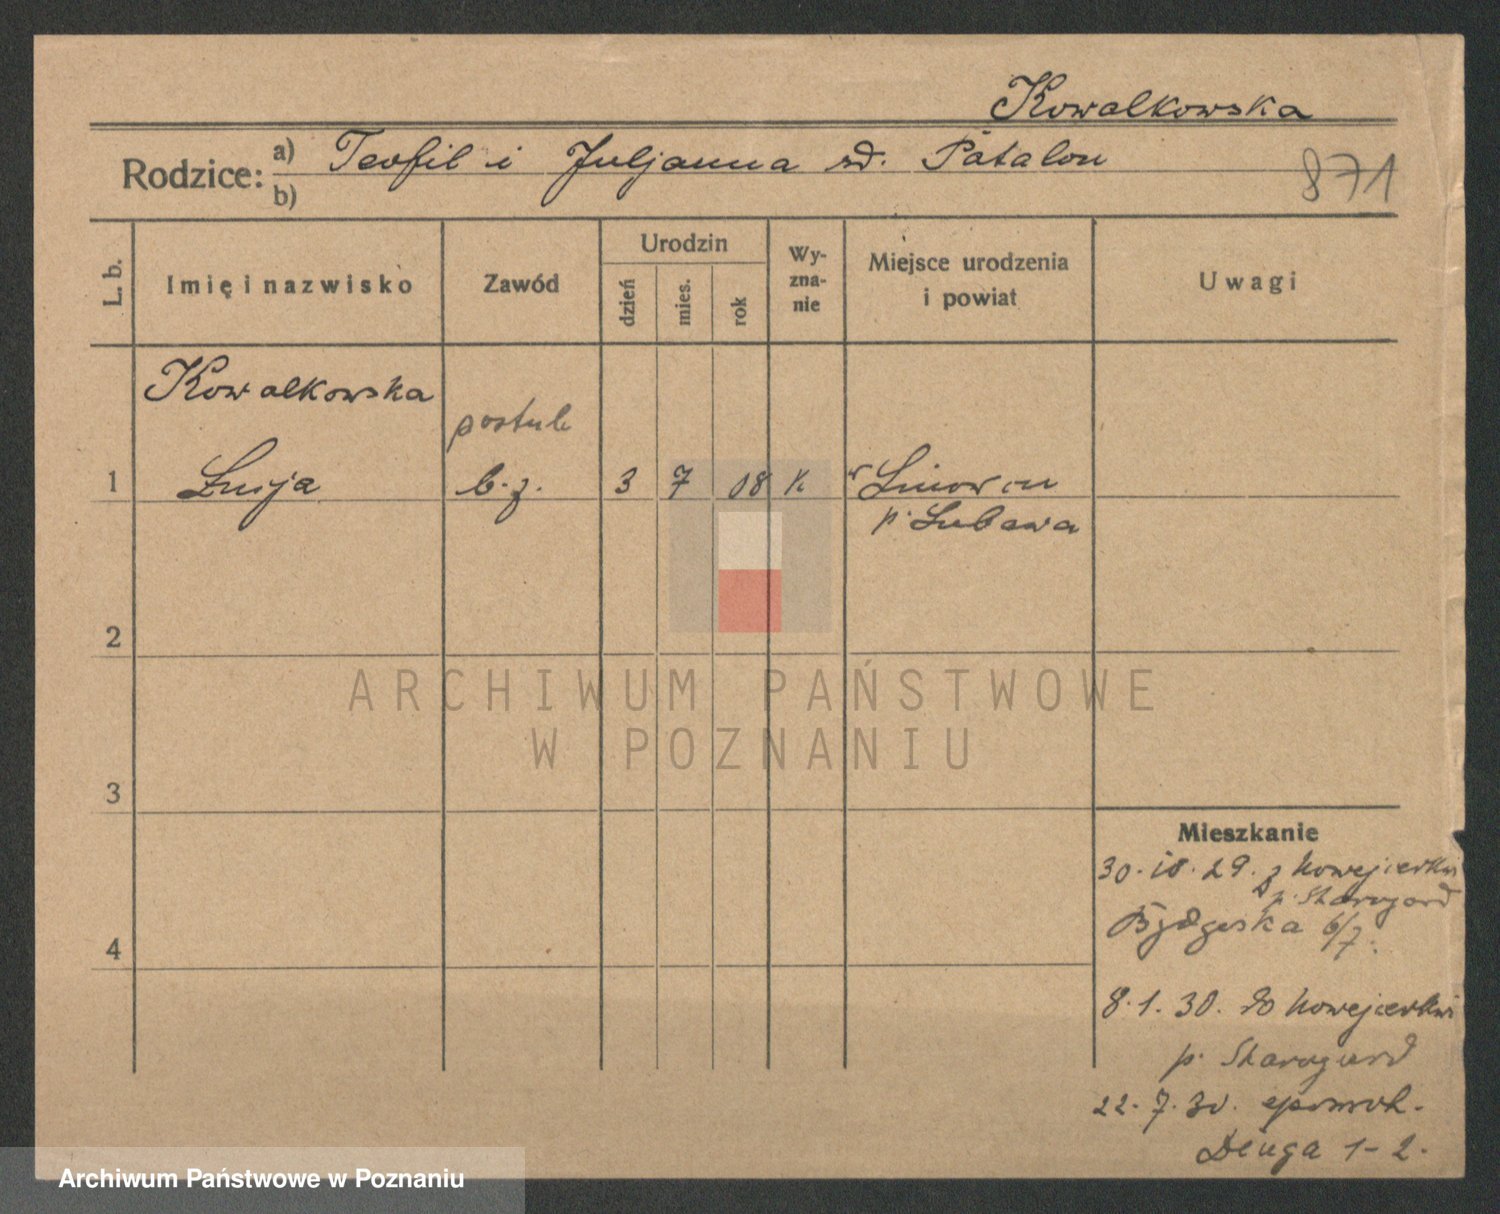 Kowalkowska
Rodzice: a) Teofil i Juljanna zd. Patalon
b)
871
L. b.
Imię i nazwisko
Zawód
Urodzin
dzień
mies.
rok
Wy-
zna-
nie
Miejsce urodzenia
i powiat
Uwagi
Kowalkowska
1 Łucja
b. z. 3 7 08 k
p. Lubawa
2
3
4
ARCHIWUM PAŃSTWOWE
W POZNANIU
Mieszkanie
30. 10. 29. z Nowejcerkwi
p. Starogard
Bydgoska 6/7.
8. 1. 30. do Nowejcerkwi
p. Starogard
22. 7. 30.
Długa 1-2.
Archiwum Państwowe w Poznaniu